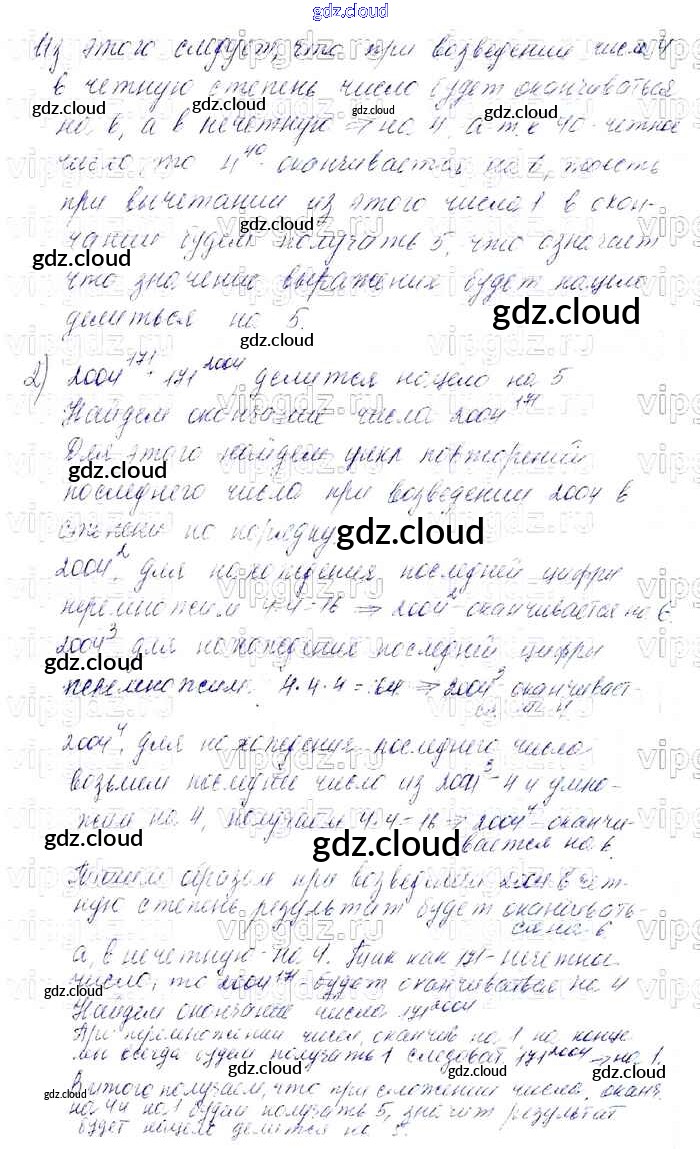 gdz.cloud
Из этого следует, что при возведении числа 4
в четную степень число будет оканчиваться
на 6, а в нечетную ⇒ на 4, а т.к 40 - четное
число, то 4⁴⁰ оканчивается на 6, тоесть
при вычетании из этого числа 1 в окон-
чании будем получать 5, что означает
что значение выражения будет нацело
делиться на 5.
2) 2004¹⁷¹ · 171²⁰⁰⁴ делится нацело на 5
Найдем окончание числа 2004¹⁷¹
Для этого найдем цикл повторений
последнего числа при возведении 2004 в
степени по порядку
2004², для нахождения последней цифры
перемножим 4·4=16 ⇒ 2004² - оканчивается на 6.
2004³ для нахождение последней цифры
перемножим. 4·4·4=64 ⇒ 2004³ оканчивает-
ся на 4
2004⁴, для нахождения последнего число
возьмем последнее число из 2004³-4 и умно-
жим на 4, получаем 4·4=16 ⇒ 2004⁴ - оканчи-
вается на 6.
образом при возведении 2004 в чет-
ную степень результат будет оканчивать-
ся на 6.
а, в нечетную - на 4. Так как 171 - нечетное
число, то 2004¹⁷¹ - будет оканчиваться на 4
Найдем окончание числа 171²⁰⁰⁴
При перемножении чисел, оканчив на 1 на конце
мы всегда будем получать 1 следоват. 171²⁰⁰⁴ ⇒ на 1.
В итого получаем, что при сложении числа, оканч.
на 4 и на 1 будем получать 5, значит результат
будет нацело делится на 5.